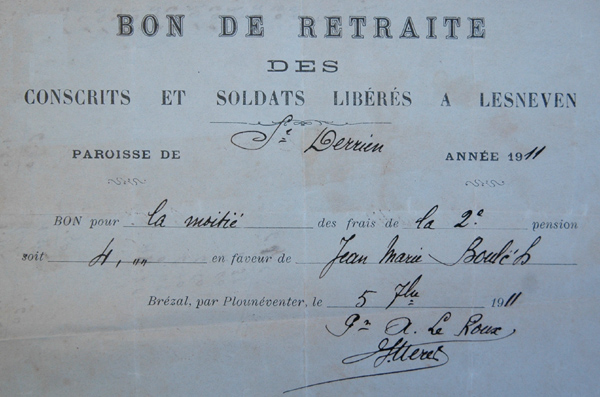 BON DE RETRAITE
DES
CONSCRITS ET SOLDATS LIBÉRÉS A LESNEVEN
PAROISSE DE St Derrien ANNÉE 1911
BON pour la moitié des frais de la 2e pension
soit 4, „„ en faveur de Jean Marie
Brézal, par Plounéventer, le 5 7bre 1911
Pr A. Le Roux